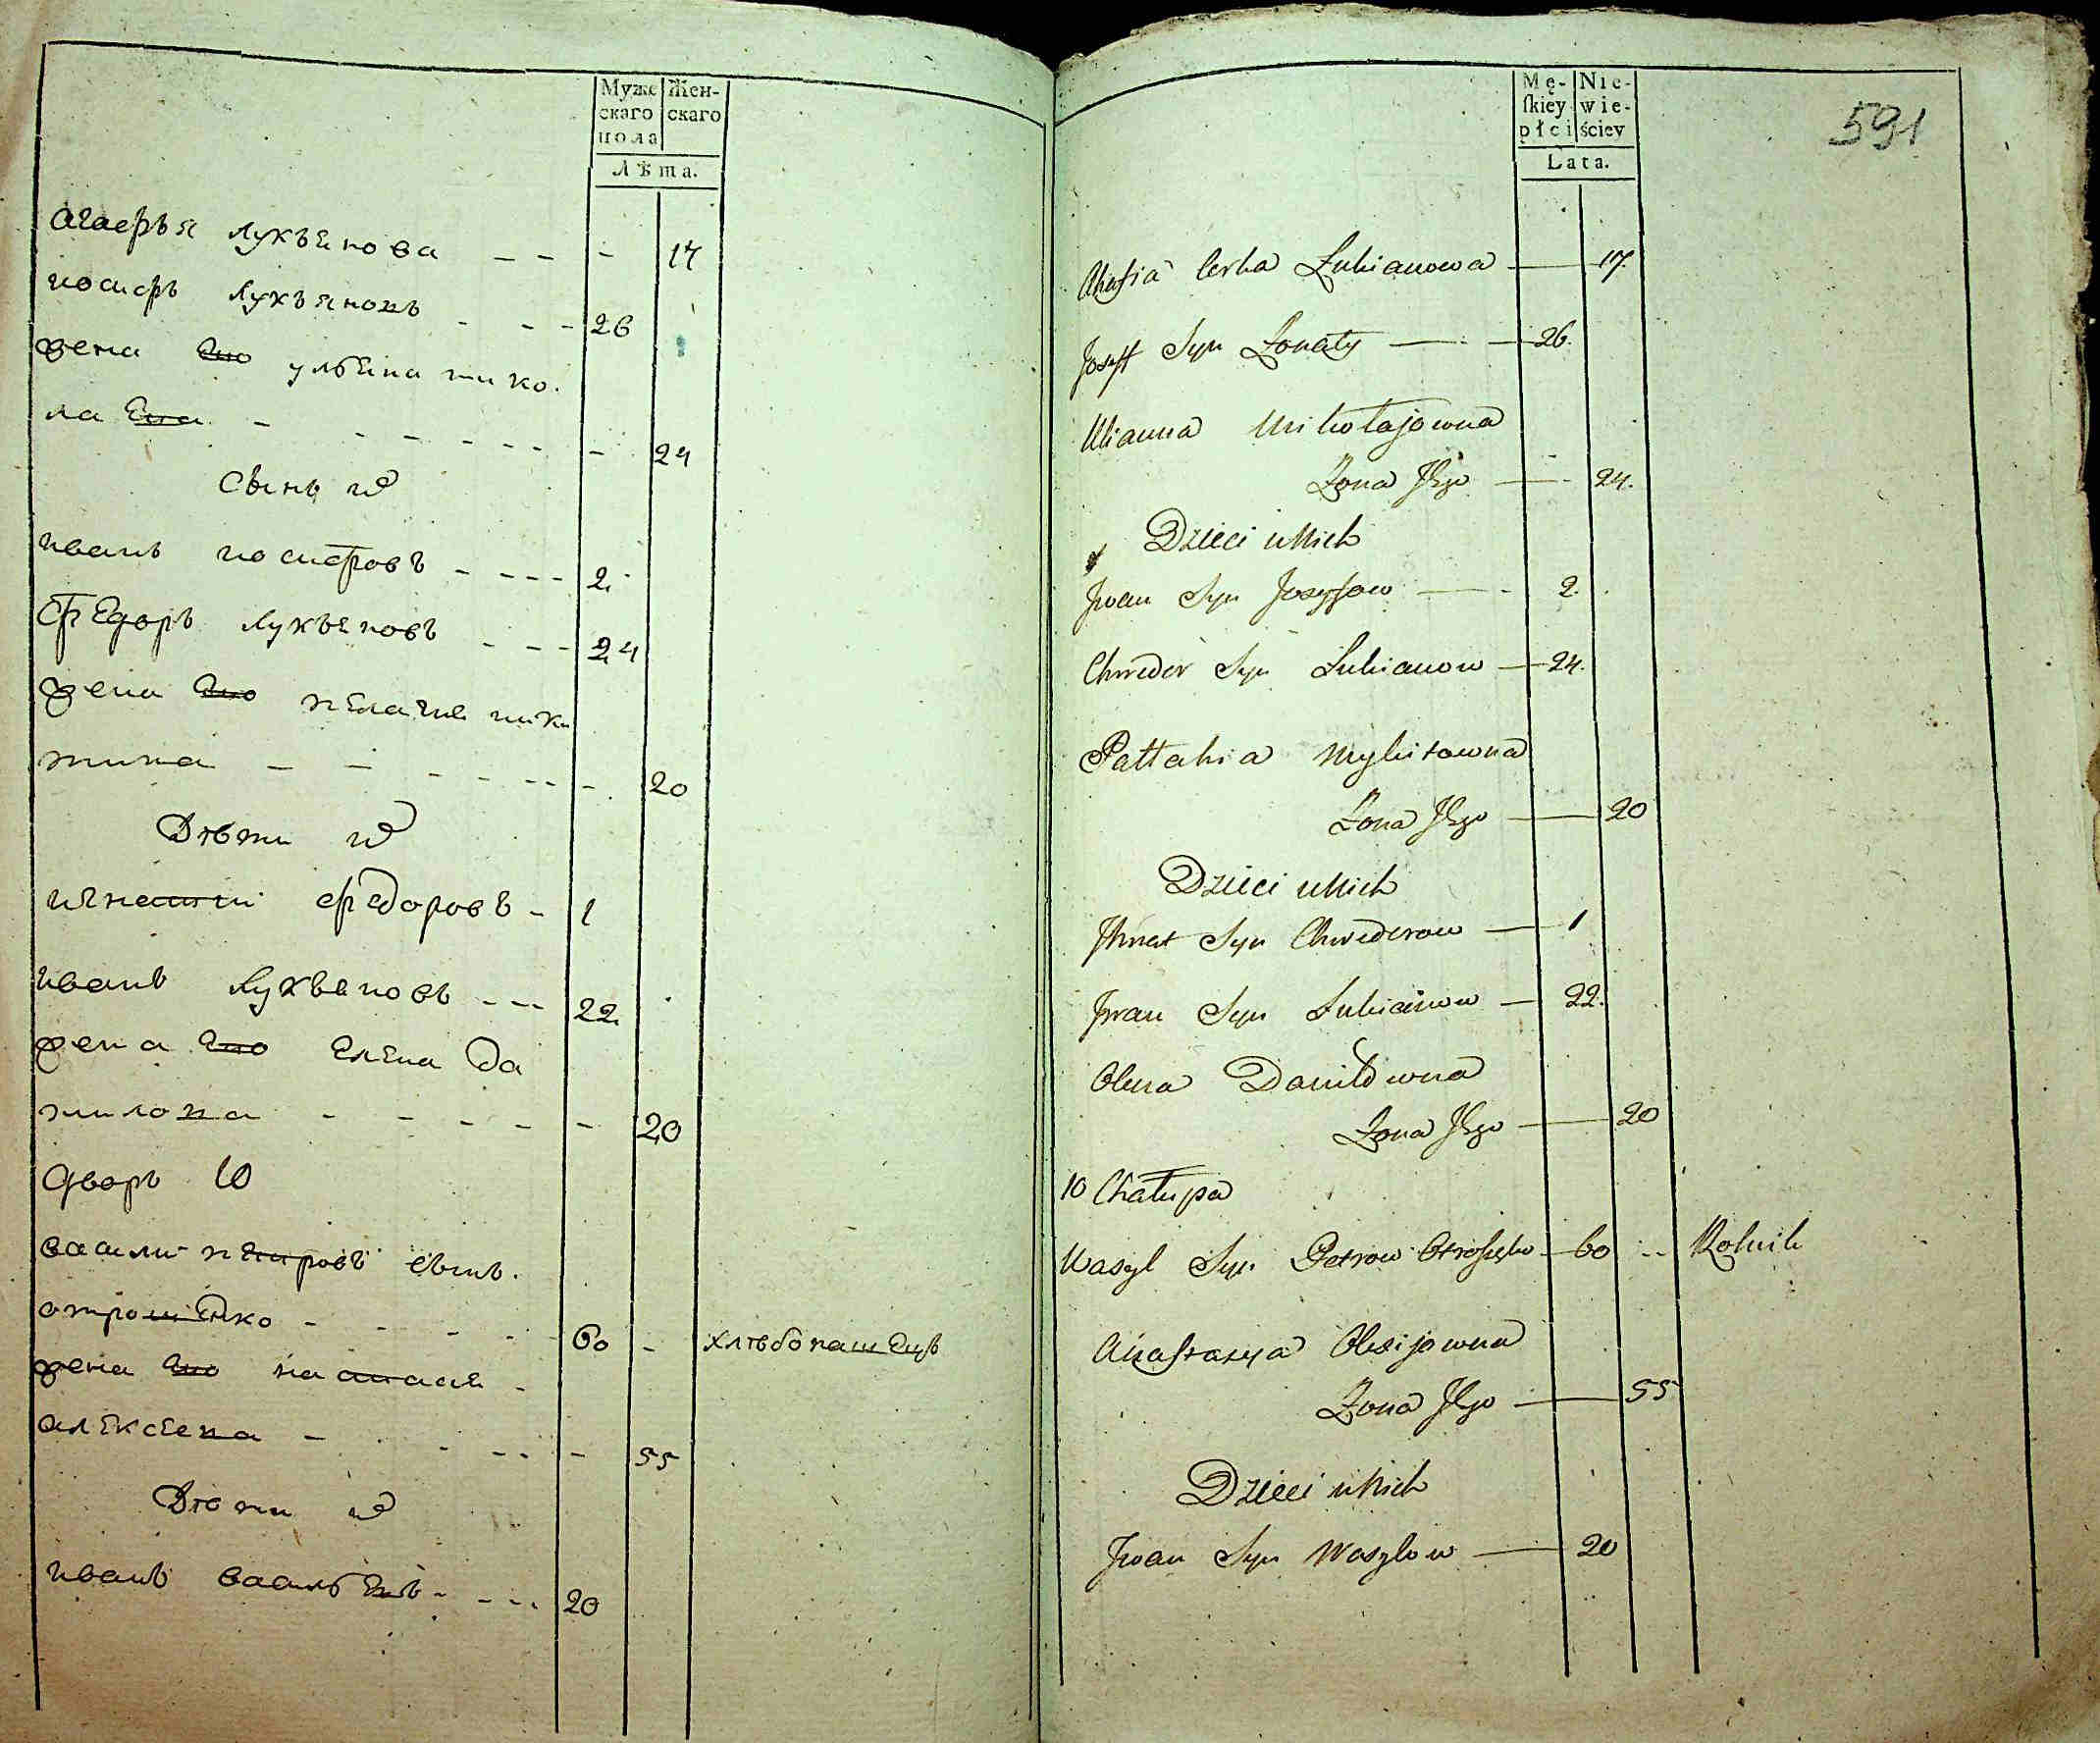 Муже
скаго
пола
Жен-
скаго
Лѣта.
агаефья лукъянова - - - 17
иосифъ лукъяновъ - - - 26
жена Его ульяна нико
лаева - - - - - - 24
Сынъ их
иванъ иосифовъ - - - - 2
Федоръ лукъяновъ - - - 24
жена Его пелагия ники
тина - - - - - - - 20
Дѣти их
игнатий федоровъ - 1
иванъ лукъяновъ - - - 22
жена Его Елена Да
нилова - - - - - - 20
дворъ 10
василий петровъ сынъ
отрошенко - - - - - 60 - хлѣбопашецъ
жена Его настасия -
алексеева - - - - - - 55
Дѣти их
иванъ васильевъ - - - - 20
Mę-
skiey
płci
Nie-
wie-
ściey
Lata.
591
Ahafia Corka Lukianowa 17.
Josyff Syn 26.
Ulianna Mikołajowna
Zona Jego 24.
Dzieci u Nich
Jwan Syn Josyfow 2.
Chweder Syn Lukianow 24.
Pallahia Mykitowna
Zona Jego 20
Dzieci u Nich
Jhnat Syn Chwederow 1
Jwan Syn Lukianow 22.
Olena Daniłowna
Zona Jego 20
10 Chałupa
Wasyl Syn Petrow 60 Rolnik
Anastazya Olexijowna
Zona Jego 55
Dzieci u Nich
Jwan Syn Wasylow 20